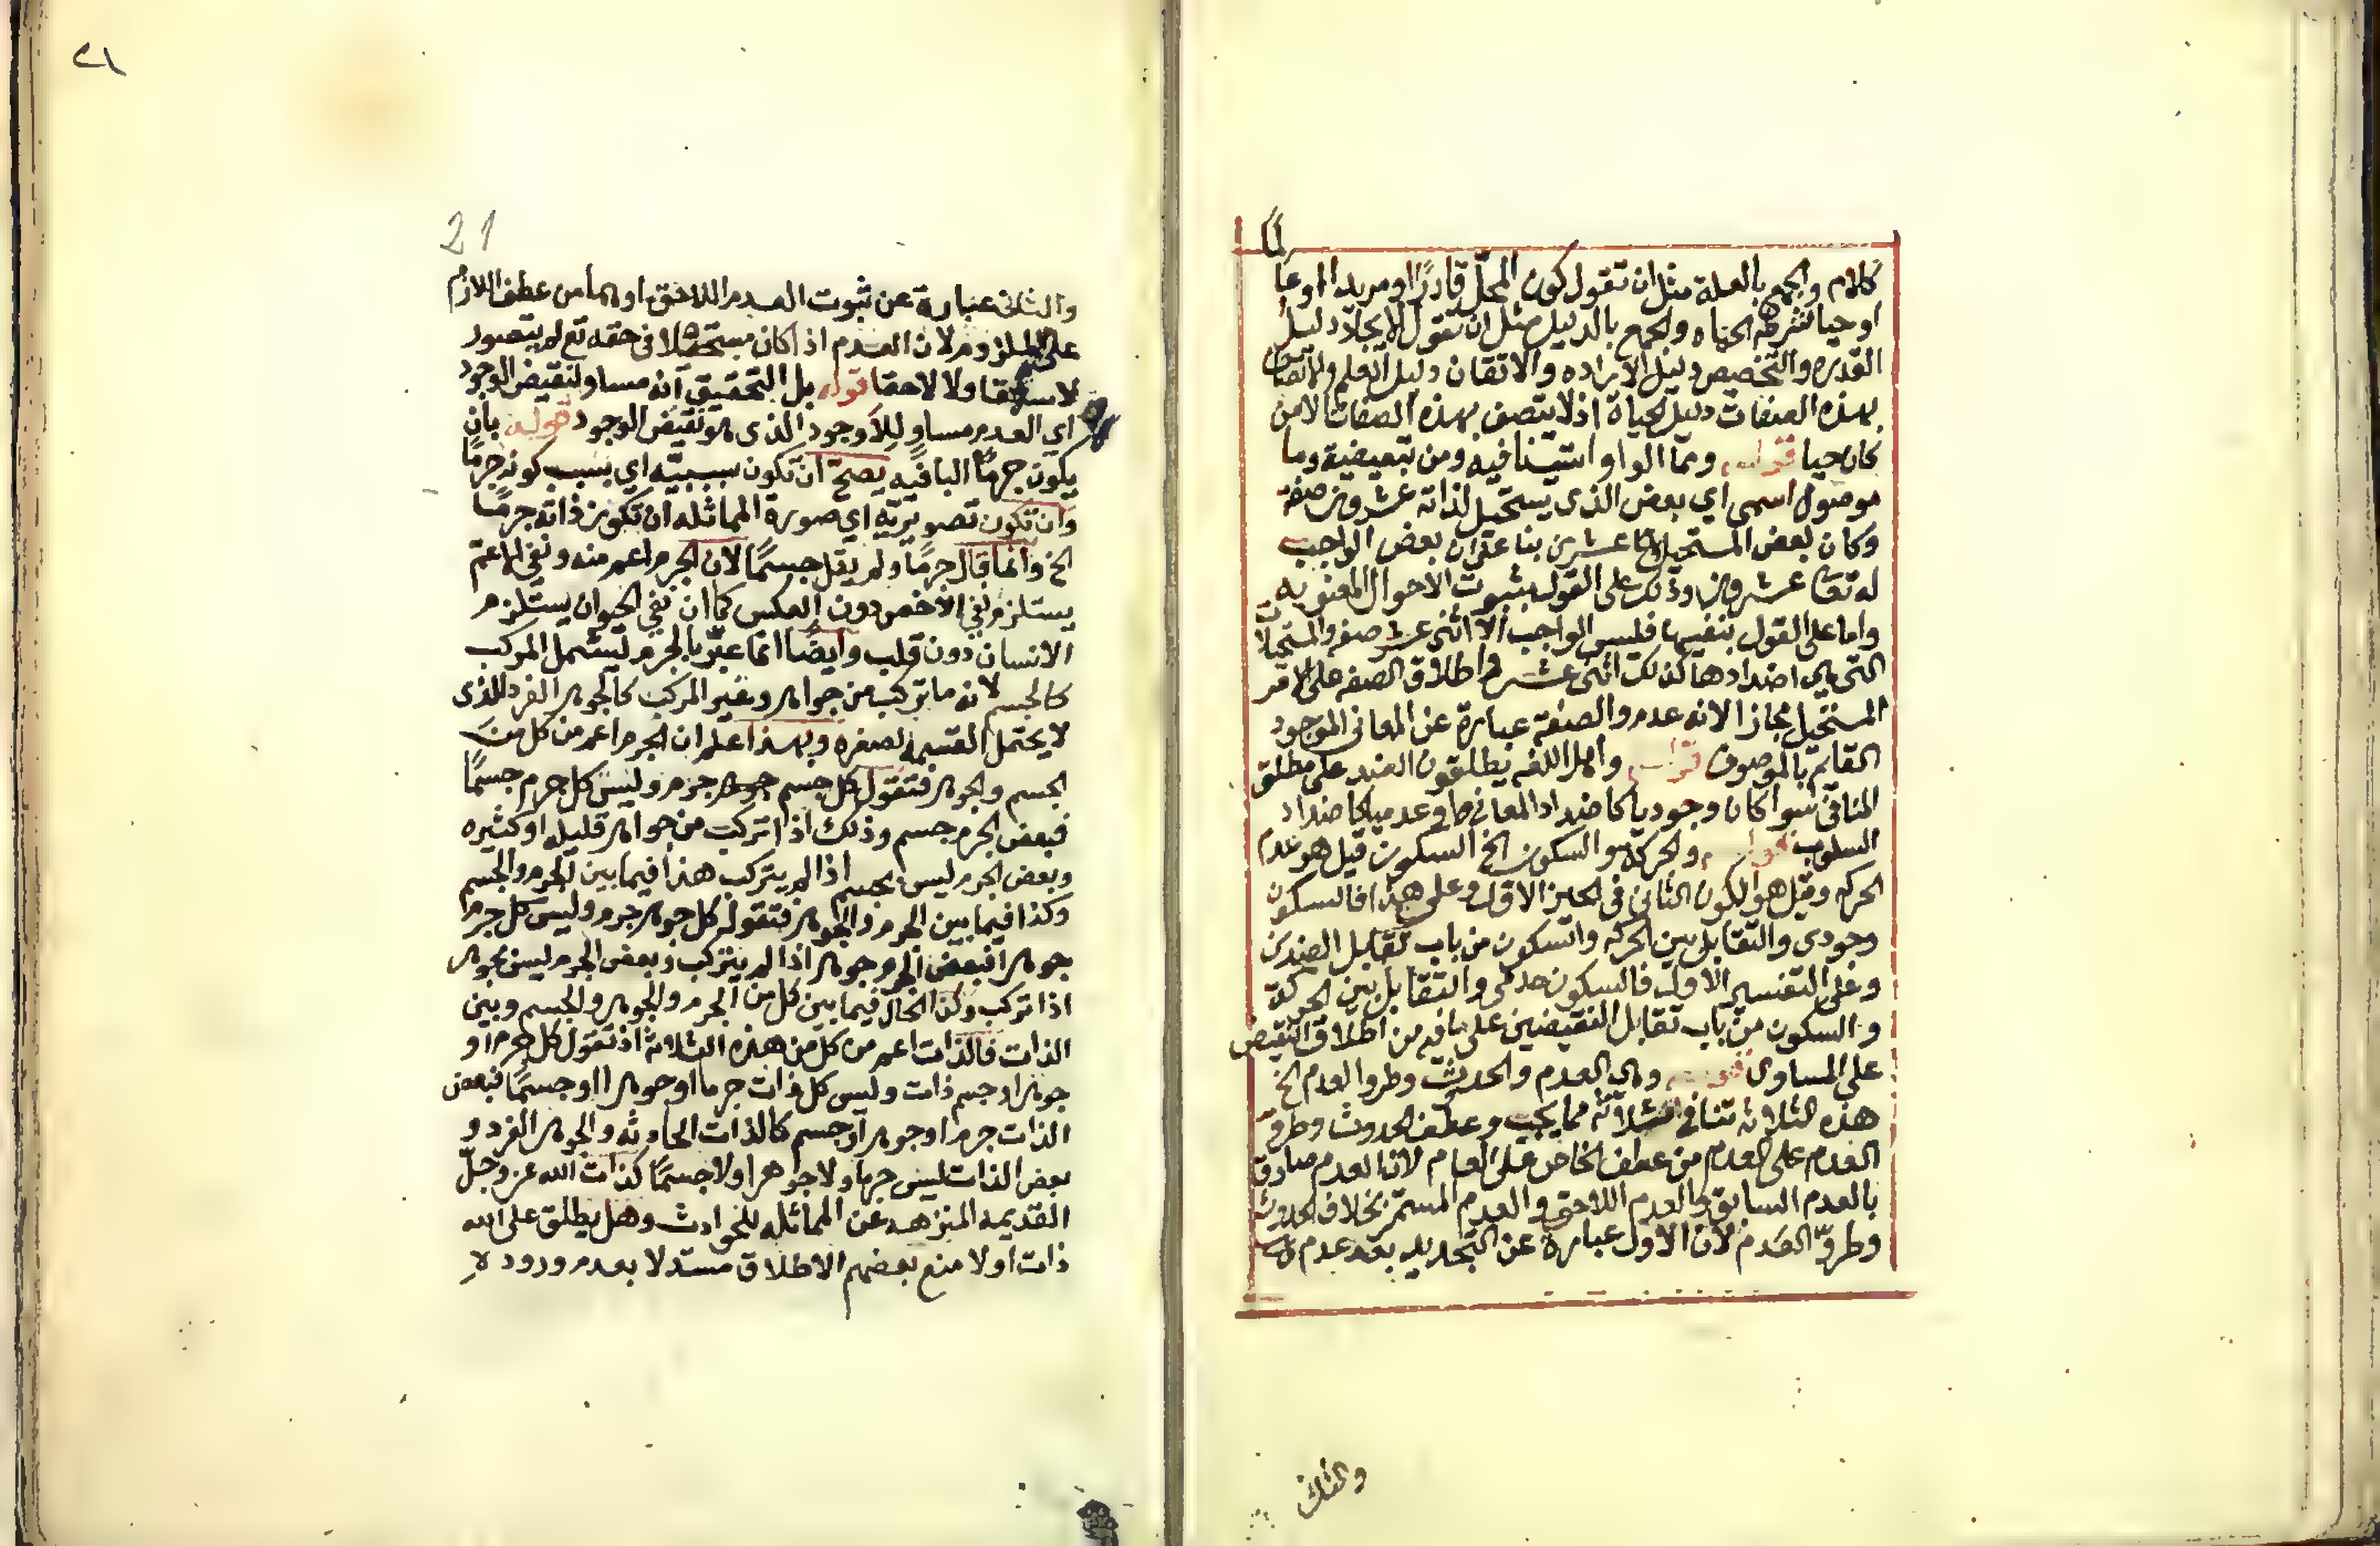 كلام والجمع بالعلة مثل ان تقول كون المحل قادرًا او مريدا او عالمًا
او حيا تشرطه الحياه والجمع بالدليل مثل ان تقول الايجاد دليل
القدره والتخصيص دليل الاراده والاتقان دليل العلم والاتصاف
بهذه الصفات دليل الحياة اذ لا يتصف بهذه الصفات الا من
كان حيا قوله ومما الواو استينافيه ومن تبعيضية وما
موصول اسمي اي بعض الذي يستحيل لذاته عشرون صفة
وكان بعض المستحيل عشرين بنا على ان بعض الواجب
له تعا عشرون وذلك على القول بثبوت الاحوال المعنويه
واما على القول بنفيها فليس الواجب الا اثنى عشر صفه والمستحيلات
التي هي اضدادها كذلك اثنى عشر واطلاق الصفه على الامر
المستحيل مجاز الانه عدم والصفة عبارة عن المعانى الموجود
القايم بالموصوف قوله واهل اللغه يطلقون الضد على مطلق
المنافى سوا كان وجوديا كاضداد المعاني او عدميا كاضداد
السلوب قوله والحركة هو السكون الخ السكون قيل هو عدم
الحركه وقيل هو الكون الثاني في الحيز الاول وعلى هذا فالسكون
وجودى والتقابل بين الحركه والسكون من باب تقابل الضدين
وعلى التفسير الاول فالسكون عدمى والتقابل بين الحركة
والسكون من باب تقابل النقيضين على ما فيه من اطلاق النقيض
على المساوى قوله وهي العدم والحدوث وطروا العدم الخ
هذه الثلاثه تنافي ثلاثة مما يجب وعطف الحدوث وطروّ
العدم على العدم من عطف الخاص على العام لان العدم صادق
بالعدم السابق والعدم اللاحق والعدم المستمر بخلاف الحدوث
وطروّ العدم لان الاول عبارة عن التجديد بعد عدم
والثانى
٢١
21
والثانى عبارة عن ثبوت العدم اللاحق او هما من عطف اللازم
على الملزوم لان العدم اذا كان مستحيلا في حقه تع لم يتصور
لا سابقا ولا لاحقا قوله بل التحقيق انه مساو لنقيض الوجود
اي العدم مساو للاوجود الذى هو نقيض الوجود قوله بان
يكون جرمًا البا فيه يصح ان تكون سببيّه اي بسبب كونه جرمًا
وان تكون تصويريّه اي صورة المماثله ان تكون ذاته جرمًا
الخ وانما قال جرمًا ولم يقل جسمًا لان الجرم اعم منه ونفي الاعم
يستلزم نفي الاخص دون العكس كما ان نفي الحيوان يستلزم
الانسان دون قلب وايضًا انما عبّر بالجرم ليشمل المركب
كالجسم لانه ما تركب من جواهر وغير المركب كالجوهر الفرد الذى
لا يحتمل القسمة لصغره وبهذا علم ان الجرم اعم من كل من
الجسم والجوهر فتقول كل جسم جرم وليس كل جرم جسمًا
فبعض الجرم جسم وذلك اذا تركب من جواهر قليله او كثيره
وبعض الجرم ليس بجسم اذا لم يتركب هذا فيما بين الجرم والجسم
وكذا فيما بين الجرم والجوهر فتقول كل جوهر جرم وليس كل جرم
جوهرا فبعض الجرم جوهر اذا لم يتركب وبعض الجرم ليس بجوهر
اذا تركب وكذا الحال فيما بين كل من الجرم والجوهر والجسم وبين
الذات فالذات اعم من كل من هذه الثلاثة اذ تقول كل جرم او
جوهر او جسم ذات وليس كل ذات جرما او جوهرا او جسمًا فبعض
الذات جرم او جوهر او جسم كالذات الحادثه والجوهر الفرد و
بعض الذات ليس جرما ولا جوهرا ولا جسمًا كذات الله عز وجلّ
القديمه المنزهه عن المماثله للحوادث وهل يطلق على الله
ذات اولا منع بعضهم الاطلاق مستدلا بعدم ورود